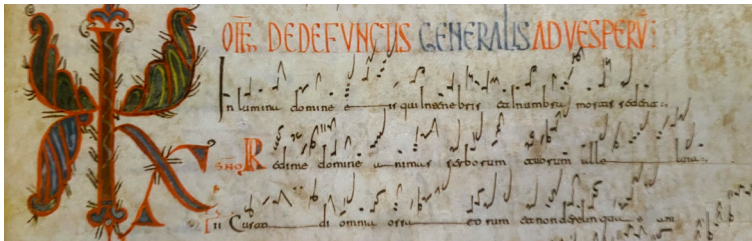 OFM DE DEFUNCTIS GENERALIS AD VESPERUM:
In lumine domine e is qui in tenebris et in umbra mortis sedent
Redime domine animas serborum tuorum ille
II Custodi omnia ossa eorum et non derelinquas